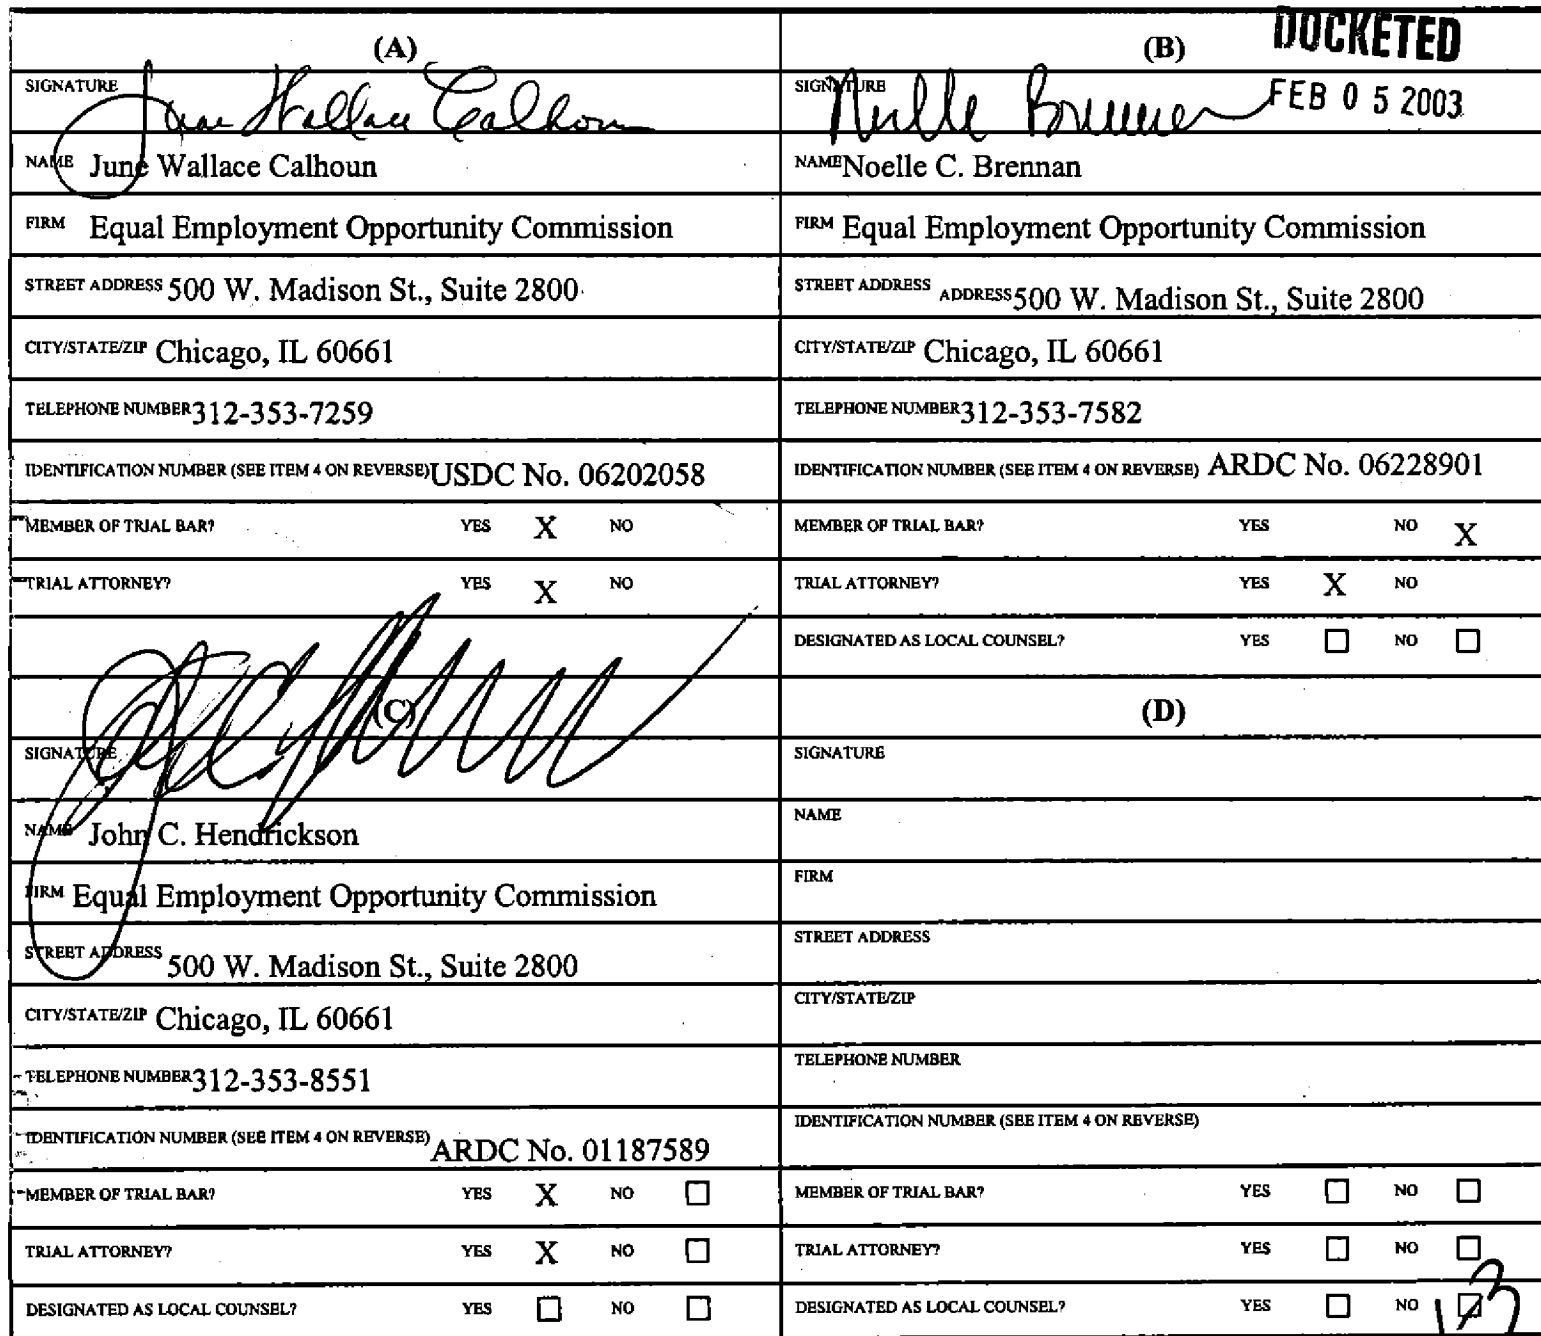 (A)
SIGNATURE June Wallace Calhoun
NAME June Wallace Calhoun
FIRM Equal Employment Opportunity Commission
STREET ADDRESS 500 W. Madison St., Suite 2800
CITY/STATE/ZIP Chicago, IL 60661
TELEPHONE NUMBER 312-353-7259
IDENTIFICATION NUMBER (SEE ITEM 4 ON REVERSE) USDC No. 06202058
MEMBER OF TRIAL BAR? YES X NO
TRIAL ATTORNEY? YES X NO
(B)
DOCKETED
FEB 05 2003
SIGNATURE Noelle Brennan
NAME Noelle C. Brennan
FIRM Equal Employment Opportunity Commission
STREET ADDRESS ADDRESS 500 W. Madison St., Suite 2800
CITY/STATE/ZIP Chicago, IL 60661
TELEPHONE NUMBER 312-353-7582
IDENTIFICATION NUMBER (SEE ITEM 4 ON REVERSE) ARDC No. 06228901
MEMBER OF TRIAL BAR? YES NO X
TRIAL ATTORNEY? YES X NO
DESIGNATED AS LOCAL COUNSEL? YES ☐ NO ☐
(C)
SIGNATURE
NAME John C. Hendrickson
FIRM Equal Employment Opportunity Commission
STREET ADDRESS 500 W. Madison St., Suite 2800
CITY/STATE/ZIP Chicago, IL 60661
TELEPHONE NUMBER 312-353-8551
IDENTIFICATION NUMBER (SEE ITEM 4 ON REVERSE) ARDC No. 01187589
MEMBER OF TRIAL BAR? YES X NO ☐
TRIAL ATTORNEY? YES X NO ☐
DESIGNATED AS LOCAL COUNSEL? YES ☐ NO ☐
(D)
SIGNATURE
NAME
FIRM
STREET ADDRESS
CITY/STATE/ZIP
TELEPHONE NUMBER
IDENTIFICATION NUMBER (SEE ITEM 4 ON REVERSE)
MEMBER OF TRIAL BAR? YES ☐ NO ☐
TRIAL ATTORNEY? YES ☐ NO ☐
DESIGNATED AS LOCAL COUNSEL? YES ☐ NO ☐